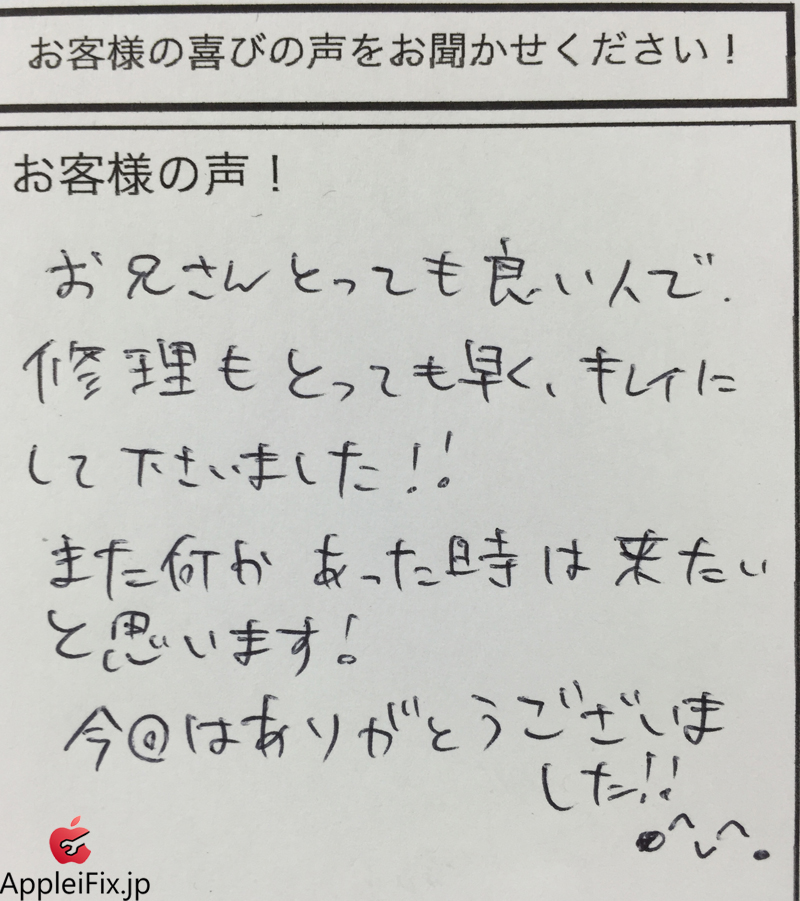 お客様の喜びの声をお聞かせください！
お客様の声！
お兄さんとっても良い人で、
修理もとっても早く、キレイに
して下さいました!!
また何かあった時は来たい
と思います!
今回はありがとうございま
した!!
AppleiFix.jp